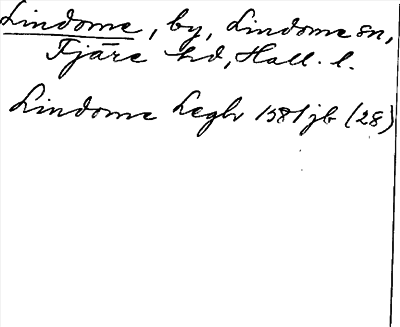 Lindome, by, Lindome sn,
Fjäre hd, Hall. l.
Lindome Legh 1581 jb (28)